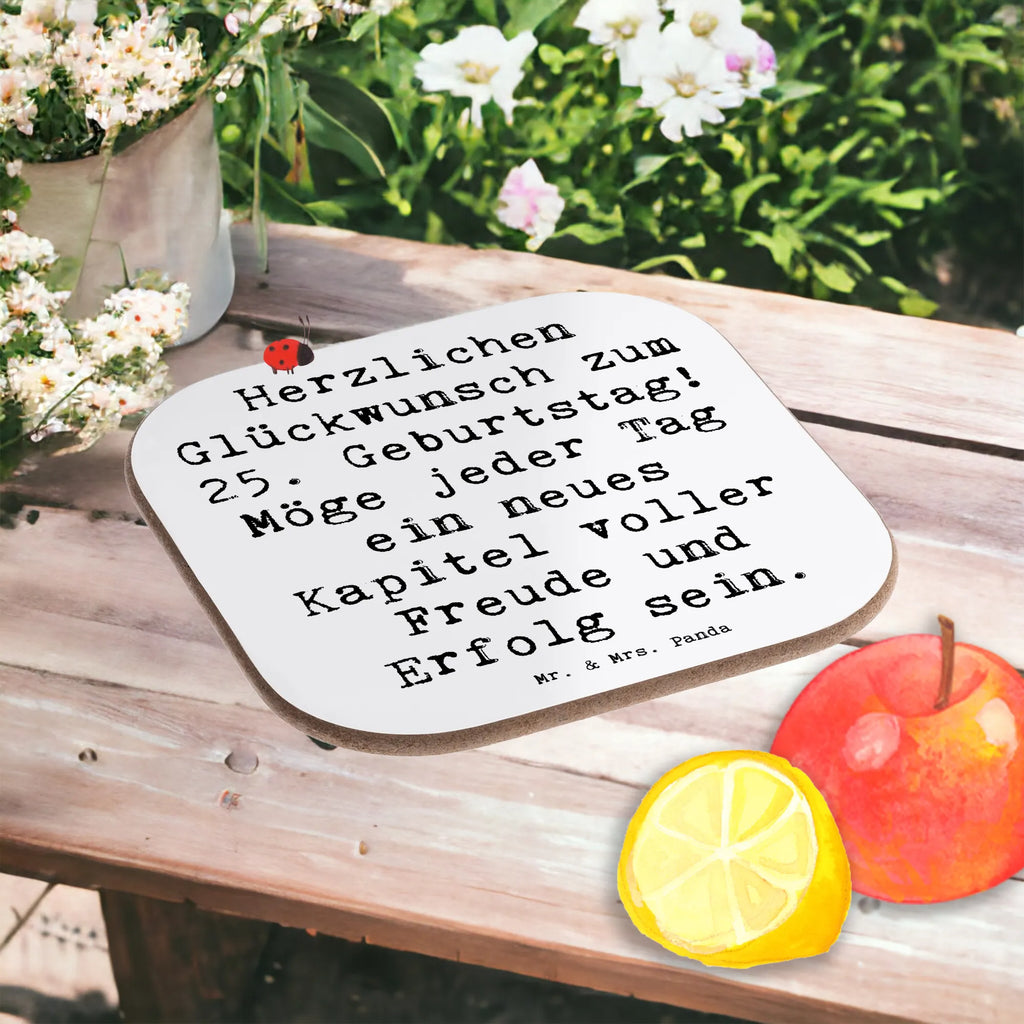 Herzlichen
Glückwunsch zum
25. Geburtstag!
Möge jeder Tag
ein neues
Kapitel voller
Freude und
Erfolg sein.
Mr. & Mrs. Panda